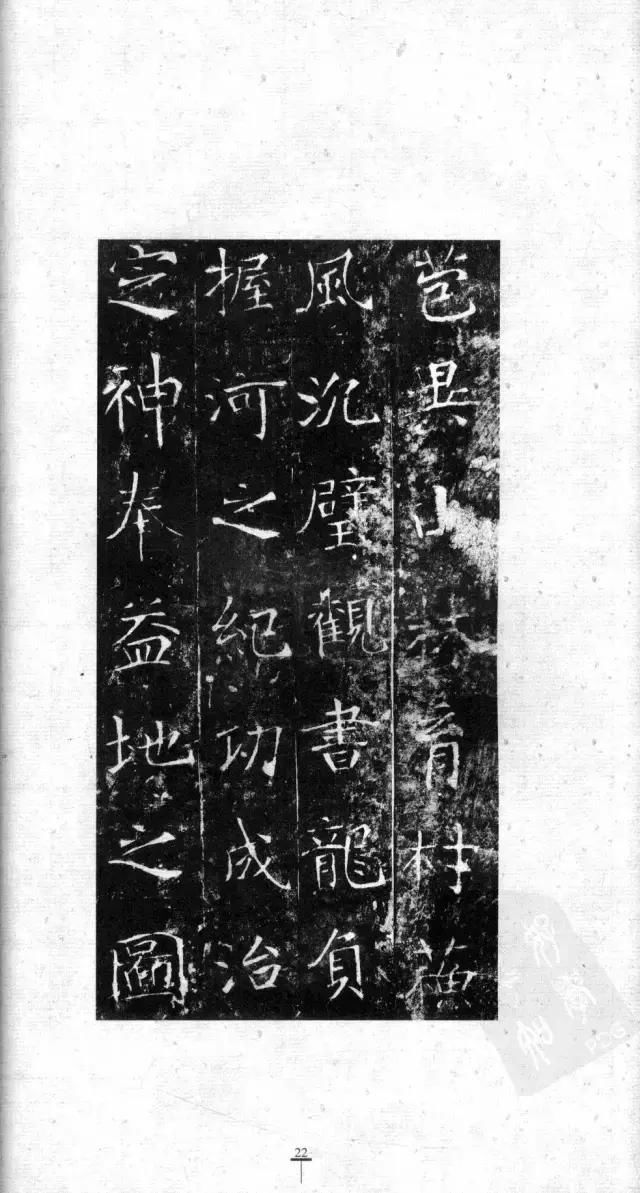 苞異山林育材
風沉璧觀書龍負
握河之紀功成治
定神奉益地之圖
PDG
22